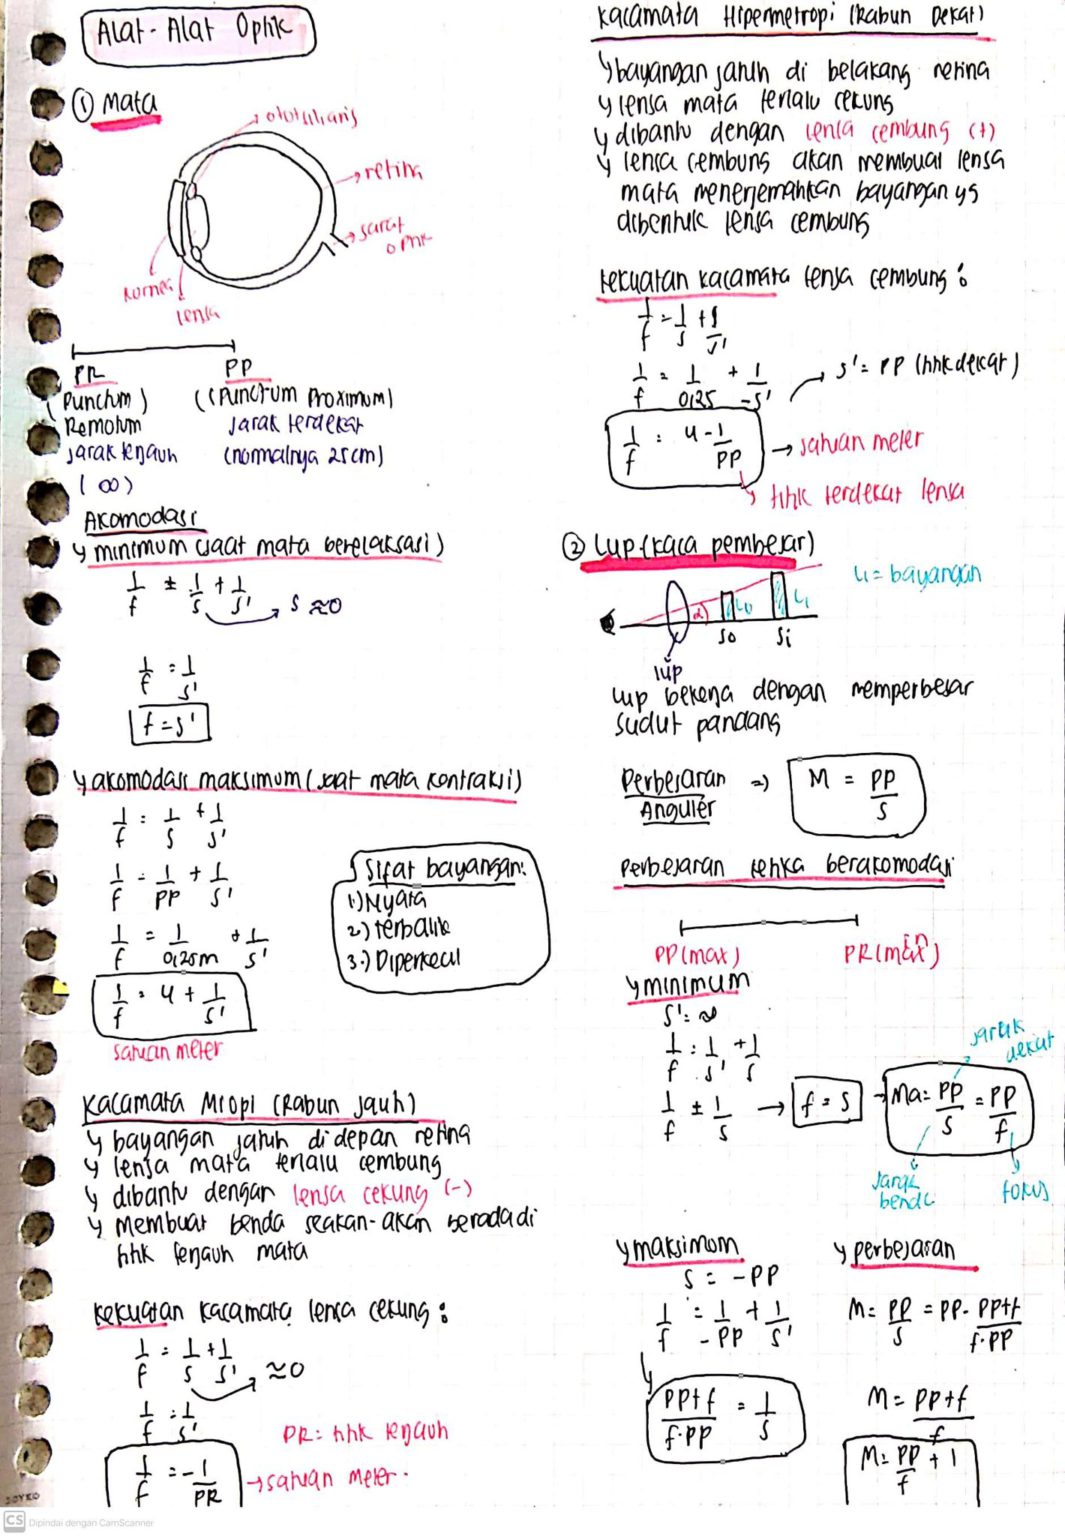 Alat-Alat Optik
① Mata
otot siliaris
retina
saraf
optik
kornea
lensa
PR
PP
(Punctum)
Remotum
jarak terjauh
(∞)
(Punctum Proximum)
jarak terdekat
(normalnya 25cm)
Akomodasi
minimum (saat mata berelaksasi)
1/f = 1/s + 1/s'
s ≈ 0
1/f = 1/s'
f = s'
akomodasi maksimum (saat mata kontraksi)
1/f = 1/s + 1/s'
1/f = 1/PP + 1/s'
1/f = 1/0,25m + 1/s'
1/f = 4 + 1/s'
satuan meter
Sifat bayangan:
1.) Nyata
2.) terbalik
3.) Diperkecil
Kacamata Miopi (Rabun Jauh)
bayangan jatuh di depan retina
lensa mata terlalu cembung
dibantu dengan lensa cekung (-)
membuat benda seakan-akan berada di
titik terjauh mata
kekuatan kacamata lensa cekung :
1/f = 1/s + 1/s'
≈ 0
1/f = 1/s'
PR = titik terjauh
1/f = -1/PR
→ satuan meter.
Kacamata Hipermetropi (Rabun Dekat)
bayangan jatuh di belakang retina
lensa mata terlalu cekung
dibantu dengan lensa cembung (+)
lensa cembung akan membuat lensa
mata menerjemahkan bayangan yg
dibentuk lensa cembung
kekuatan kacamata lensa cembung :
1/f = 1/s + 1/s'
1/f = 1/0,25 + 1/-s'
s' = PP (titik dekat)
1/f = 4 - 1/PP
→ satuan meter
titik terdekat lensa
② Lup (kaca pembesar)
Li = bayangan
α
Lo
Li
So
Si
lup
lup bekerja dengan memperbesar
sudut pandang
Perbesaran
Anguler
=> M = PP/S
perbesaran ketika berakomodasi
PP (max)
PR (min)
minimum
s' = ∞
1/f = 1/s' + 1/s
1/f = 1/s → f = s → Ma = PP/S = PP/f
jarak
dekat
jarak
benda
fokus
maksimum
s = -PP
1/f = 1/-PP + 1/s'
PP+f/f.PP = 1/s
perbesaran
M = PP/S = PP. PP+f/f.PP
M = PP+f/f
M = PP/f + 1
JOYKO
CS Dipindai dengan CamScanner